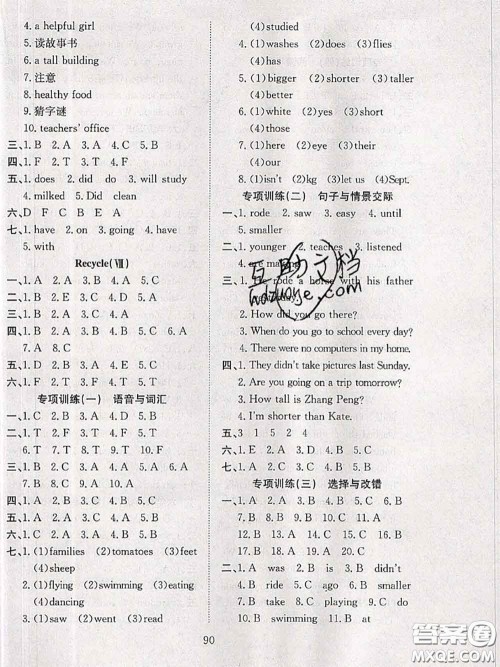 4. a helpful girl
5. 读故事书
6. a tall building
7. 注意
8. healthy food
9. 猜字谜
10. teachers' office
三、1. B 2. A 3. A 4. C 5. B
四、1. T 2. F 3. T 4. F
五、1. does 2. did 3. will study
4. milked 5. Did clean
六、D F C B E A
七、1. have 2. on 3. going 4. have
5. with
Recycle(Ⅶ)
一、1. A 2. B 3. C 4. A 5. C
二、1. B 2. E 3. C 4. D 5. A
三、1. B 2. A 3. B 4. C 5. C 6. B
7. A 8. C
四、1. B 2. C 3. A 4. E 5. D
五、1. D 2. A 3. B 4. E 5. C
六、1. F 2. T 3. F 4. T 5. F
专项训练(一) 语音与词汇
一、1. C 2. C 3. B 4. A 5. B
二、1. T 2. F 3. T 4. T 5. F
6. T 7. T 8. T 9. T 10. F
三、1. A 2. B 3. A 4. C 5. B 6. B
7. B 8. C 9. A 10. A
四、1. A 2. C 3. B 4. A 5. C
五、1. C 2. A 3. C 4. A 5. B
六、1. A 2. A 3. C 4. B 5. B
七、1. (1)families (2)tomatoes (3)feet
(4)sheep
2. (1)flying (2)swimming (3)eating
(4)dancing
3. (1)saw (2)went (3)read
(4)studied
4. (1)washes (2)does (3)flies
(4)has
5. (1)bigger (2)shorter (3)taller
(4)better
6. (1)white (2)yes (3)short
(4)those
7. (1)here (2)eye (3)their
(4)our
8. (1)isn't (2)kg (3)let us (4)Sept.
专项训练(二) 句子与情景交际
一、1. rode 2. saw 3. easy 4. until
5. smaller
二、1. younger 2. teaches 3. listened
4. are making
三、1. rode a horse with his father
2. How did you go there?
3. When do you go to school every day?
4. There were no computers in my home.
四、1. They didn't take pictures last Sunday.
2. Are you going on a trip tomorrow?
3. How tall is Zhang Peng?
4. I'm shorter than Kate.
五、3 1 5 2 4
七、1. C 2. B 3. A 4. B 5. C
专项训练(三) 选择与改错
一、1. B 2. A 3. C 4. C 5. C 6. B
7. B 8. C 9. B 10. C 11. A
12. B 13. B 14. C 15. A 16. B
17. B 18. B 19. A 20. B
二、1. A was 2. B is 3. B didn't
4. B ride 5. C ago 6. B smaller
7. B take 8. C playing 9. C do
10. B swimming 11. B at
90
互助文档
hdzuoye.com
答案圈
MXQE.COM